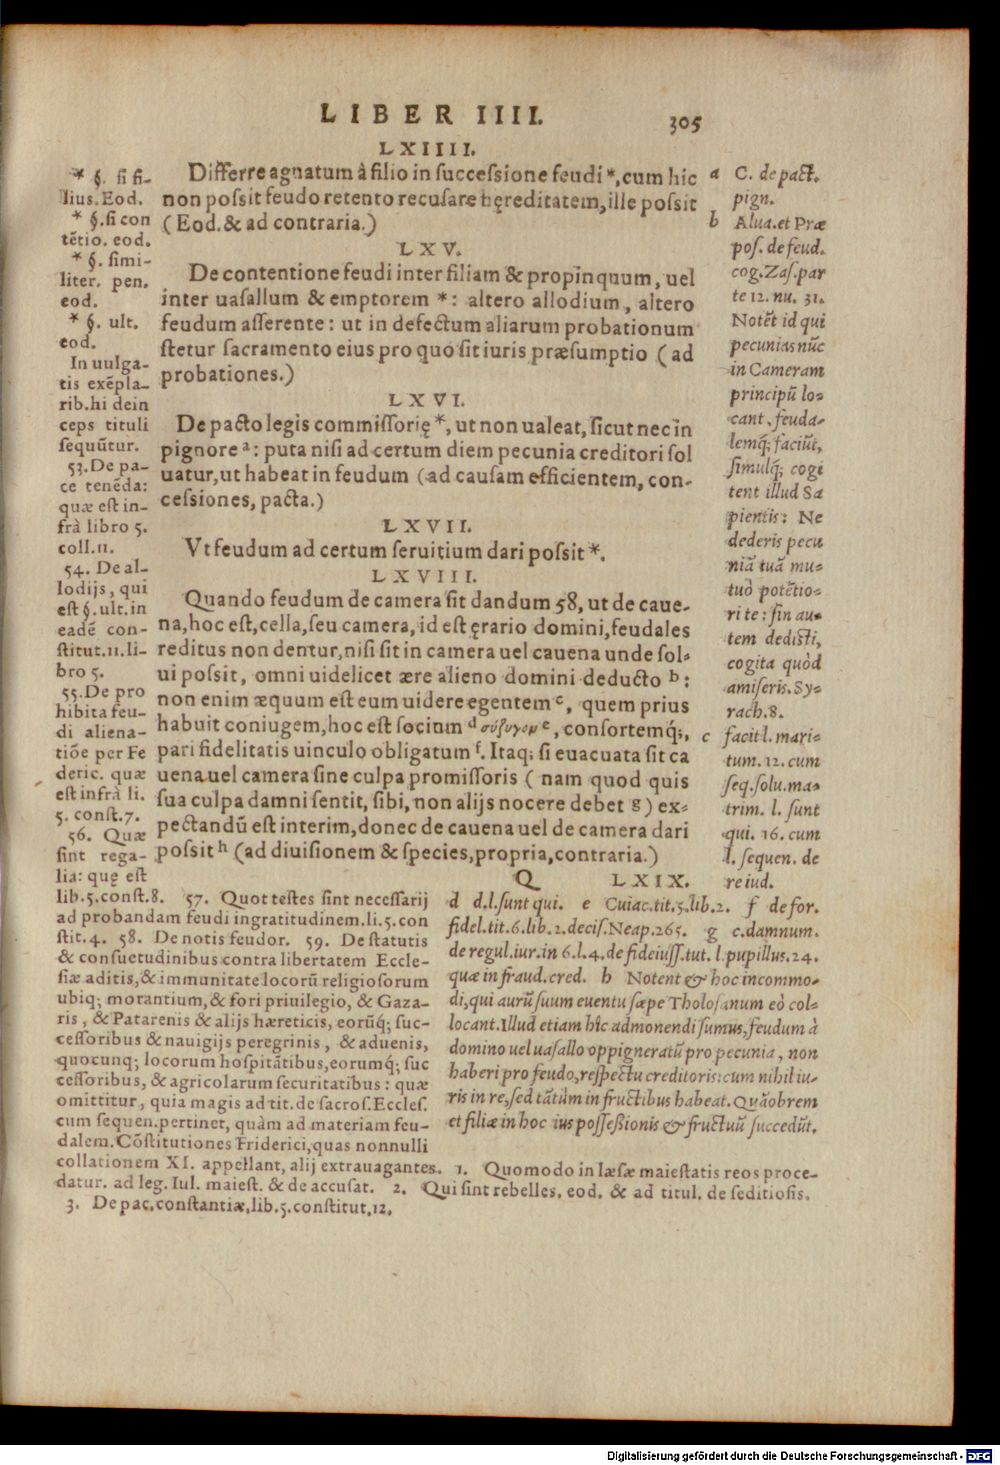 LIBER IIII. 305
LXIIII.
Differre agnatum à filio in successione feudi *, cum hic
non possit feudo retento recusare hęreditatem, ille possit
(Eod. & ad contraria.)
LXV.
De contentione feudi inter filiam & propinquum, uel
inter uasallum & emptorem *: altero allodium, altero
feudum asserente: ut in defectum aliarum probationum
stetur sacramento eius pro quo sit iuris præsumptio (ad
probationes.)
LXVI.
De pacto legis commissorię *, ut non ualeat, sicut nec in
pignore a: puta nisi ad certum diem pecunia creditori sol
uatur, ut habeat in feudum (ad causam efficientem, con-
cessiones, pacta.)
LXVII.
Vt feudum ad certum seruitium dari possit *.
LXVIII.
Quando feudum de camera sit dandum 58, ut de caue-
na, hoc est, cella, seu camera, id est ęrario domini, feudales
reditus non dentur, nisi sit in camera uel cauena unde sol-
ui possit, omni uidelicet ære alieno domini deducto b:
non enim æquum est eum uidere egentem c, quem prius
habuit coniugem, hoc est socium d σύζυγον e, consortemq́;,
pari fidelitatis uinculo obligatum f. Itaq; si euacuata sit ca
uena uel camera sine culpa promissoris (nam quod quis
sua culpa damni sentit, sibi, non alijs nocere debet g) ex-
pectandũ est interim, donec de cauena uel de camera dari
possit h (ad diuisionem & species, propria, contraria.)
Q LXIX.
* §. si fi-
lius. Eod.
* §. si con
tẽtio. eod.
* §. simi-
liter. pen.
eod.
* §. ult.
eod.
In uulga-
tis exẽpla-
rib. hi dein
ceps tituli
sequũtur.
53. De pa-
ce tenẽda:
quæ est in-
frà libro 5.
coll. 11.
54. De al-
lodijs, qui
est §. ult. in
eadẽ con-
stitut. 11. li-
bro 5.
55. De pro
hibita feu-
di aliena-
tiõe per Fe
deric. quæ
est infrà li.
5. const. 7.
56. Quæ
sint rega-
lia: quę est
lib. 5. const. 8. 57. Quot testes sint necessarij
ad probandam feudi ingratitudinem. li. 5. con
stit. 4. 58. De notis feudor. 59. De statutis
& consuetudinibus contra libertatem Eccle-
siæ aditis, & immunitate locorũ religiosorum
ubiq; morantium, & fori priuilegio, & Gaza-
ris, & Patarenis & alijs hæreticis, eorũq́; suc-
cessoribus & nauigijs peregrinis, & aduenis,
quocunq; locorum hospitãtibus, eorumq́; suc
cessoribus, & agricolarum securitatibus: quæ
omittitur, quia magis ad tit. de sacros. Eccles.
cum sequen. pertinet, quàm ad materiam feu-
dalem. Cõstitutiones Friderici, quas nonnulli
collationem XI. appellant, alij extrauagantes. 1. Quomodo in læsæ maiestatis reos proce-
datur. ad leg. Iul. maiest. & de accusat. 2. Qui sint rebelles. eod. & ad titul. de seditiosis.
3. De pac. constantiæ, lib. 5. constitut. 12.
a C. de pact.
pign.
b Alua. et Præ
pos. de feud.
cog. Zas. par
te 12. nu. 31.
Notẽt id qui
pecunias nũc
in Cameram
principũ lo-
cant, feuda-
lemq́; faciũt,
simulq́; cogi
tent illud Sa
pientis: Ne
dederis pecu
niã tuã mu-
tuò potẽtio-
ri te: sin au-
tem dedisti,
cogita quòd
amiseris. Sy-
rach. 8.
c facit l. mari-
tum. 12. cum
seq. solu. ma-
trim. l. sunt
qui. 16. cum
l. sequen. de
re iud.
d d. l. sunt qui. e Cuiac. tit. 5. lib. 2. f de for.
fidel. tit. 6. lib. 2. decis. Neap. 265. g c. damnum.
de regul. iur. in 6. l. 4. de fideiuss. tut. l. pupillus. 24.
quæ in fraud. cred. h Notent & hoc incommo-
di, qui aurũ suum euentu sæpe Tholosanum eò col-
locant. Illud etiam hîc admonendi sumus, feudum à
domino uel uasallo oppigneratũ pro pecunia, non
haberi pro feudo, respectu creditoris: cum nihil iu-
ris in re, sed tãtùm in fructibus habeat. Quãobrem
et filiæ in hoc ius possessionis & fructuũ succedũt.
Digitalisierung gefördert durch die Deutsche Forschungsgemeinschaft - DFG